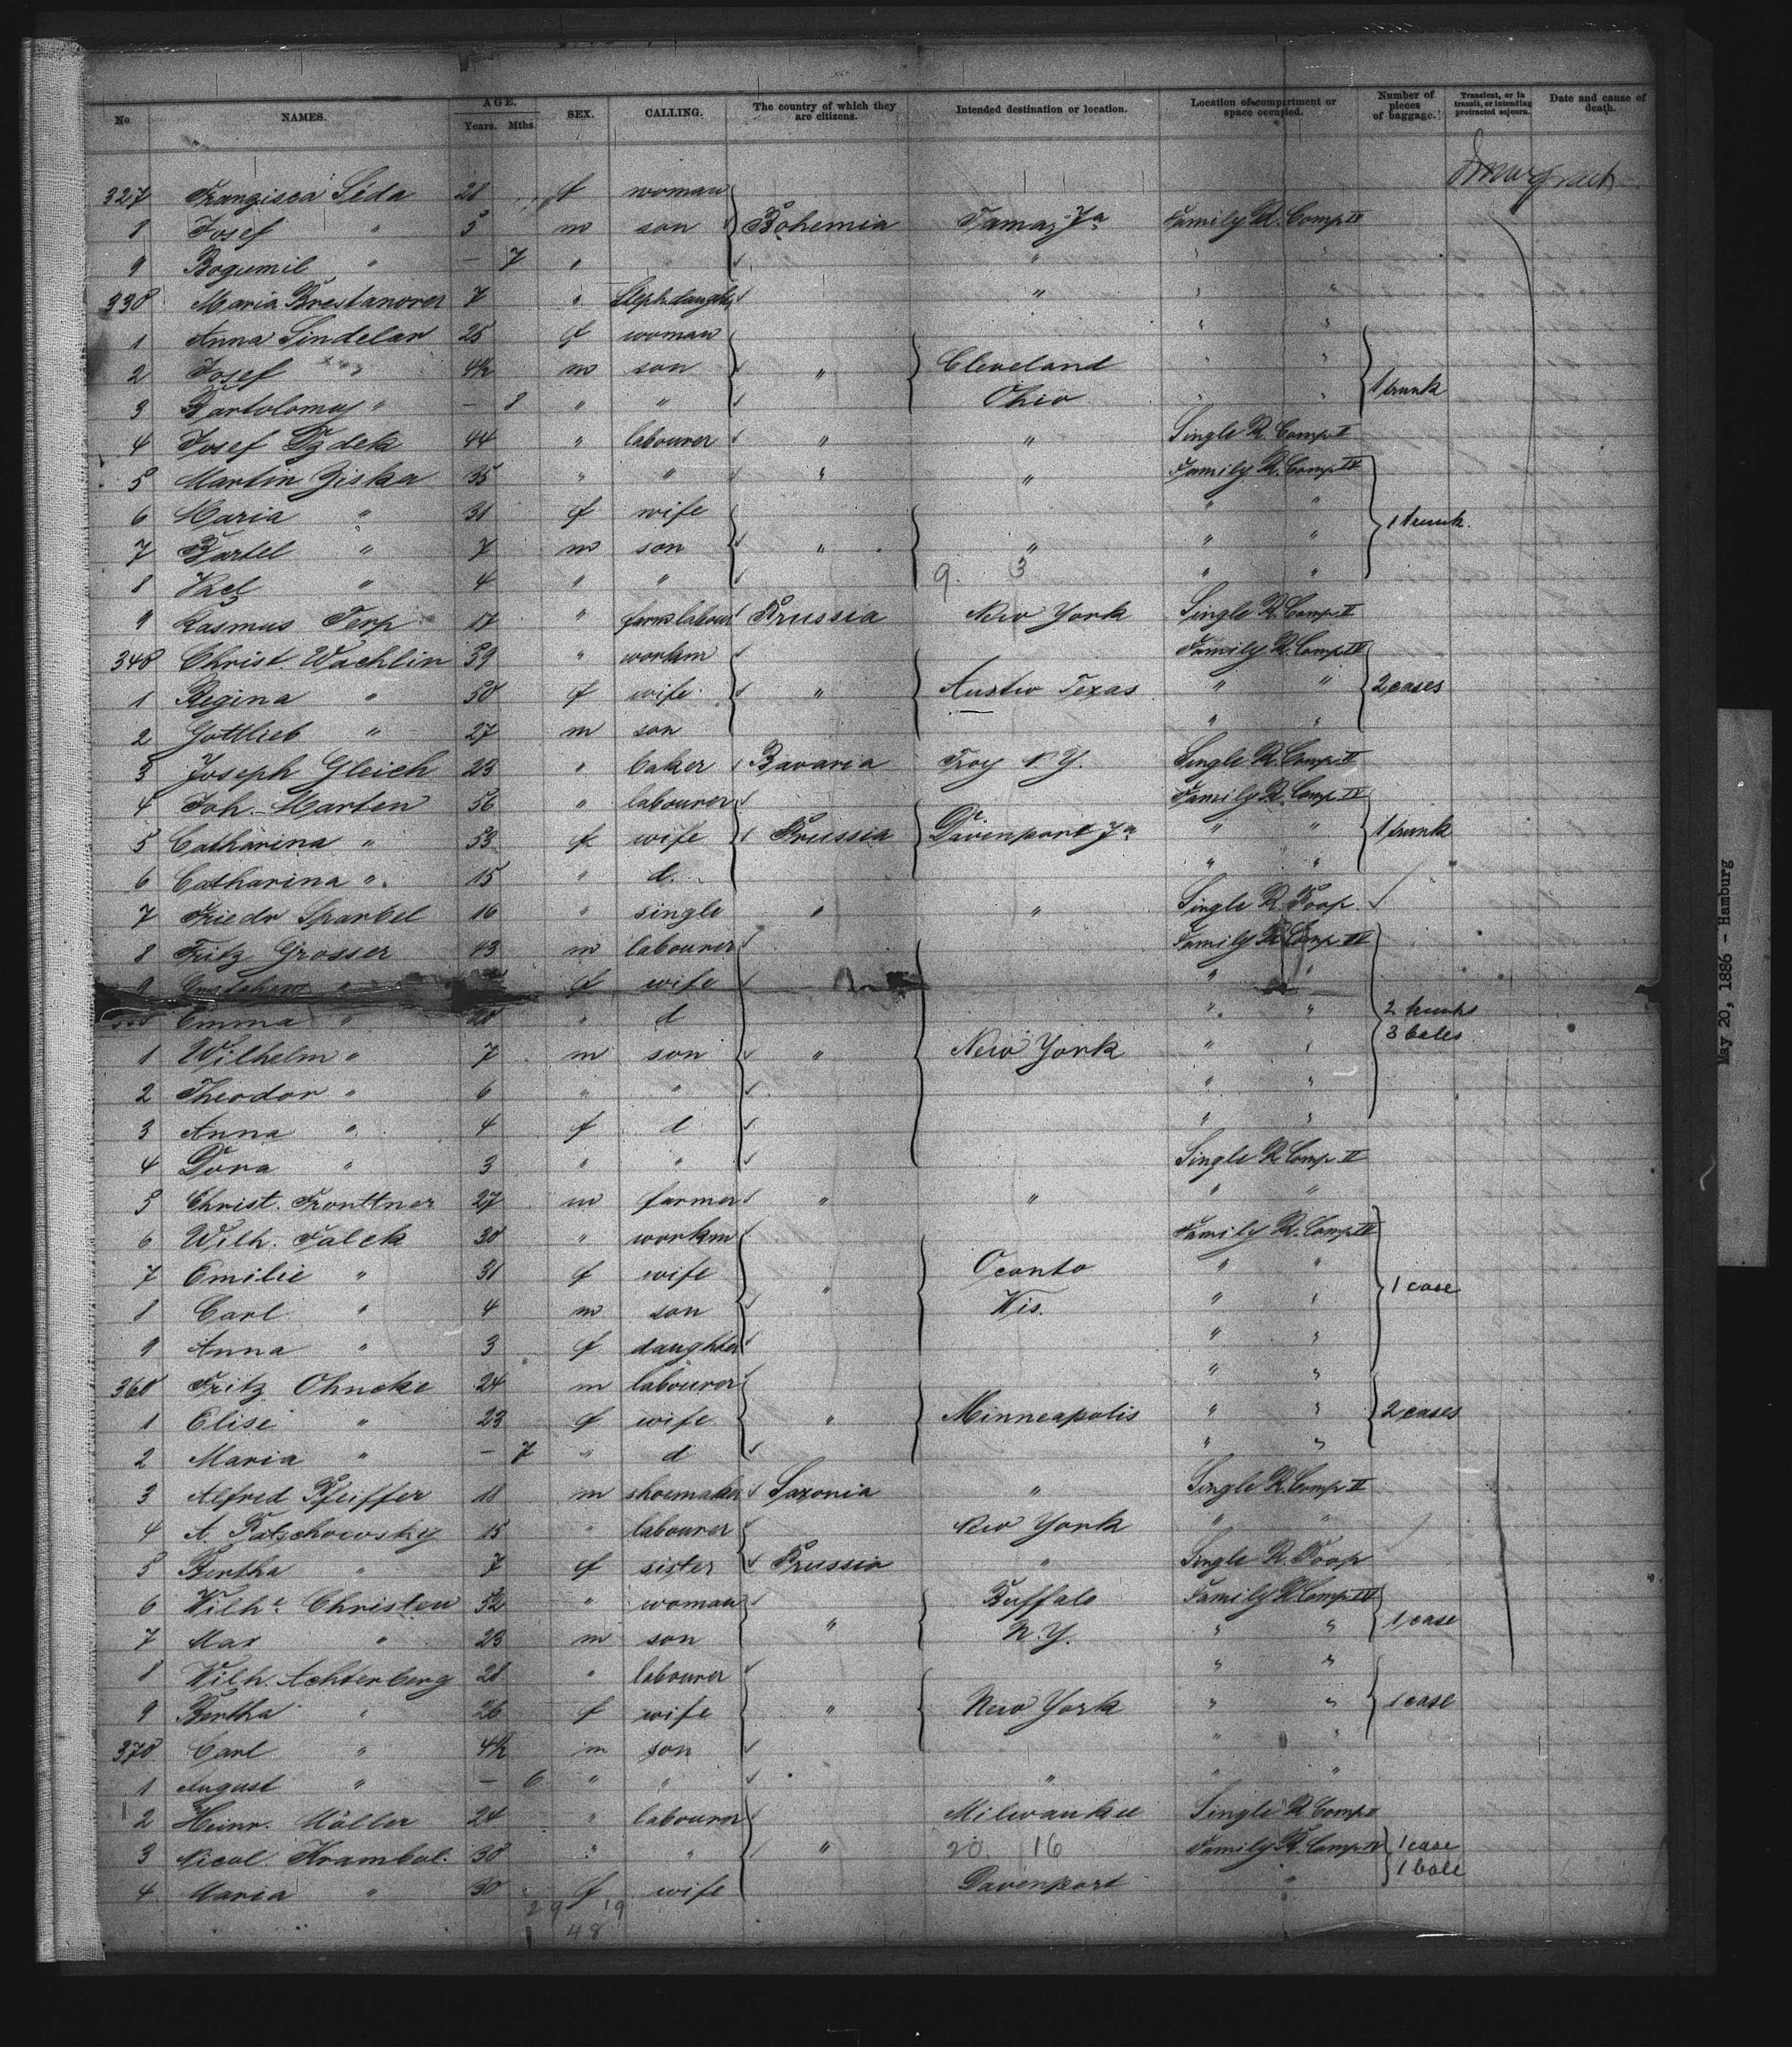 No. NAMES. AGE. Years. Mths. SEX. CALLING. The country of which they are citizens. Intended destination or location. Location of compartment or space occupied. Number of pieces of baggage. Transient, or in transit, or intending protracted sojourn. Date and cause of death.
327 Franzisca Seda 28 f woman
8 Josef " 5 m son Bohemia Tama, Ja Family R. Comp IV
9 Bogumil " — 7 " "
330 Maria 7 " Stephdaught "
1 Anna Sindelar 25 f woman " "
2 Josef " 4½ m son " Cleveland " "
3 Bartolomay " — 8 " " Ohio " " 1 trunk
4 Josef 44 " labourer " " Single R. Comp II
5 Martin Ziska 35 " " " " Family R. Comp IV
6 Maria " 31 f wife " " 1 trunk.
7 Bartel " 7 m son " " " "
8 " 4 " " 9 3 " "
9 Rasmus Terp 17 " farmlabour Prussia New York Single R. Comp II
340 Christ. Wachlin 59 " workm Family R. Comp IV
1 Regina " 50 f wife " Austin Texas " " 2 cases
2 Gottlieb " 27 m son " "
3 Joseph Gleich 23 " baker Bavaria Troy N.Y. Single R. Comp II
4 Joh. Marten 56 " labourer Family R. Comp IV
5 Catharina " 53 f wife Prussia Davenport Ja " " 1 trunk
6 Catharina " 15 " d. " "
7 Friedr Sparbel 16 " single " " Single R. Poop
8 Fritz Grosser 43 m labourer Family R. Comp IV
9 " f wife " "
Emma " 20 " d " " 2 trunks
1 Wilhelm " 7 m son " New York " " 3 bales
2 Theodor " 6 " " " "
3 Anna " 4 f d " "
4 Dora " 3 " " Single R Comp II
5 Christ. 27 m farmer " " " "
6 Wilh. Falck 30 " workm Family R. Comp IV
7 Emilie " 31 f wife Oconto " "
8 Carl " 4 m son " Wis. " " 1 case
9 Anna " 3 f daughter " "
360 Fritz Ohncke 24 m labourer " "
1 Elise " 23 f wife " Minneapolis " " 2 cases
2 Maria " — 7 " d " "
3 Alfred Pfeiffer 18 m shoemaker Saxonia " Single R. Comp II
4 A. Patschowsky 15 " labourer New York " "
5 Bertha " 7 f sister Prussia " Single R. Poop
6 Wilhe. Christen 52 " woman Buffalo Family R Comp IV
7 Max " 23 m son " N.Y. " " 1 case
8 Wilh. Achterberg 28 " labourer " "
9 Bertha " 26 f wife " New York " " 1 case
370 Carl " 4½ m son " "
1 August " — 6 " " " " "
2 Heinr. Möller 24 " labourer Milwaukee Single R. Comp
3 Nicol. Krambol. 30 " " " 20 16 Family R. Comp IV 1 case
4 Maria " 30 f wife Davenport " 1 bale
29 19
48
May 20, 1886 - Hamburg